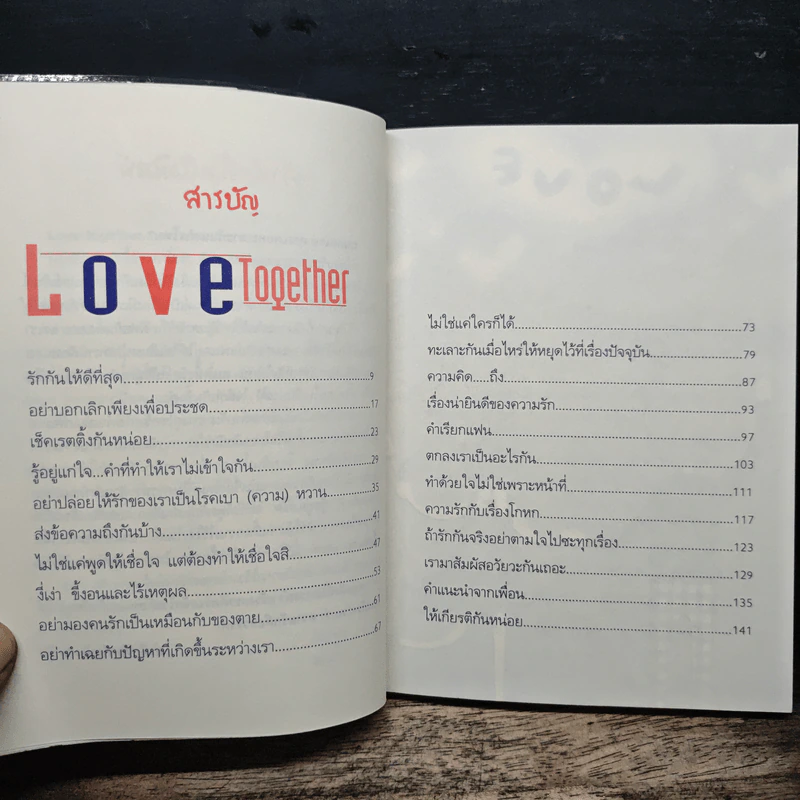 สารบัญ
Love Together
รักกันให้ดีที่สุด 9
อย่าบอกเลิกเพียงเพื่อประชด 17
เช็คเรตติ้งกันหน่อย 23
รู้อยู่แก่ใจ...คำที่ทำให้เราไม่เข้าใจกัน 29
อย่าปล่อยให้รักของเราเป็นโรคเบา (ความ) หวาน 35
ส่งข้อความถึงกันบ้าง 41
ไม่ใช่แค่พูดให้เชื่อใจ แต่ต้องทำให้เชื่อใจสิ 47
งี่เง่า ขี้งอนและไร้เหตุผล 53
อย่ามองคนรักเป็นเหมือนกับของตาย 61
อย่าทำเฉยกับปัญหาที่เกิดขึ้นระหว่างเรา 67
ไม่ใช่แค่ใครก็ได้ 73
ทะเลาะกันเมื่อไหร่ให้หยุดไว้ที่เรื่องปัจจุบัน 79
ความคิด.....ถึง 87
เรื่องน่ายินดีของความรัก 93
คำเรียกแฟน 97
ตกลงเราเป็นอะไรกัน 103
ทำด้วยใจไม่ใช่เพราะหน้าที่ 111
ความรักกับเรื่องโกหก 117
ถ้ารักกันจริงอย่าตามใจไปซะทุกเรื่อง 123
เรามาสัมผัสอวัยวะกันเถอะ 129
คำแนะนำจากเพื่อน 135
ให้เกียรติกันหน่อย 141